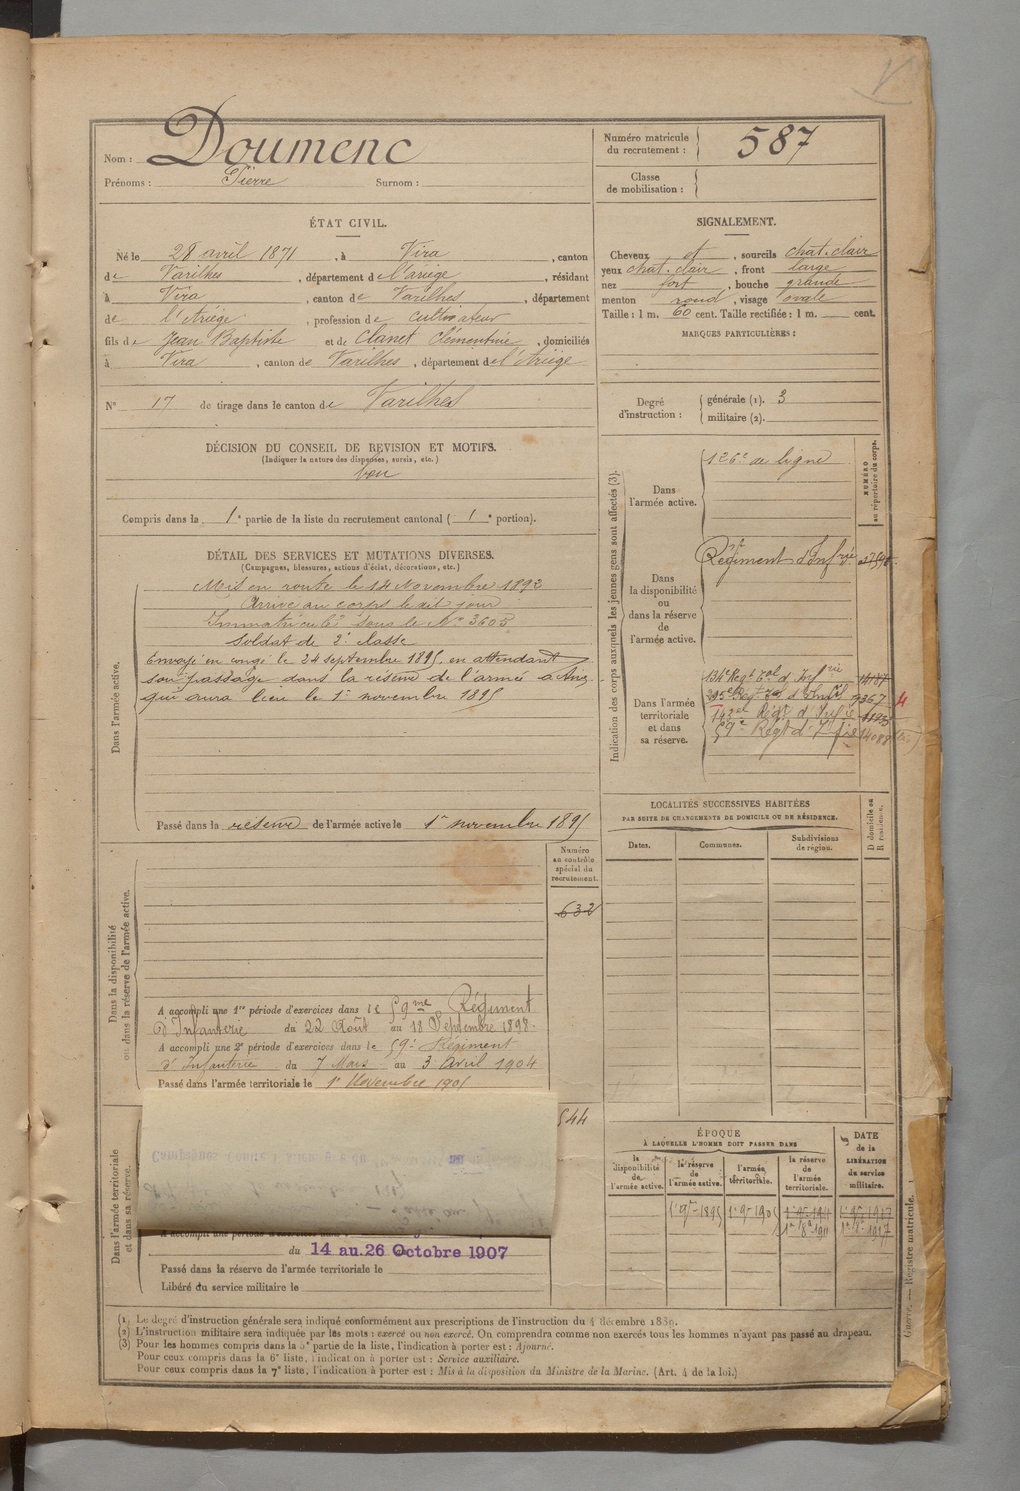 Nom : Doumenc
Prénoms : Pierre Surnom :
Numéro matricule du recrutement : 587
Classe de mobilisation :
ÉTAT CIVIL.
Né le 28 avril 1871, à Vira, canton
de Varilhes, département de l'ariège, résidant
à Vira, canton de Varilhes, département
de l'Ariège, profession de cultivateur
fils de Jean Baptiste et de Clanet Clémentine, domiciliés
à Vira, canton de Varilhes, département de l'Ariège
N° 17 de tirage dans le canton de Varilhes
SIGNALEMENT.
Cheveux et, sourcils chat. clair
yeux chat. clair, front large
nez fort, bouche grande
menton rond, visage ovale
Taille : 1 m. 60 cent. Taille rectifiée : 1 m. cent.
MARQUES PARTICULIÈRES :
Degré d'instruction : générale (1). 3
militaire (2).
DÉCISION DU CONSEIL DE REVISION ET MOTIFS.
(Indiquer la nature des dispenses, sursis, etc.)
bon
Compris dans la 1e partie de la liste du recrutement cantonal ( 1e portion).
DÉTAIL DES SERVICES ET MUTATIONS DIVERSES.
(Campagnes, blessures, actions d'éclat, décorations, etc.)
Dans l'armée active.
Mis en route le 14 Novembre 1892
Arrivé au corps le dit jour
Immatriculé sous le N° 3605
Soldat de 2e classe
Envoyé en congé le 24 septembre 1895, en attendant
son passage dans la réserve de l'armée active,
qui aura lieu le 1er novembre 1895
Passé dans la réserve de l'armée active le 1er novembre 1895
Indication des corps auxquels les jeunes gens sont affectés (3).
NUMÉRO au répertoire du corps.
Dans l'armée active.
126e de ligne
Dans la disponibilité ou dans la réserve de l'armée active.
Régiment d'Infrie
Dans l'armée territoriale et dans sa réserve.
134e Régt Tal d'Infrie
Régt d'Infie
59e Régt d'Infie
LOCALITÉS SUCCESSIVES HABITÉES
PAR SUITE DE CHANGEMENTS DE DOMICILE OU DE RÉSIDENCE.
D domicile ou R résidence.
Dates. Communes. Subdivisions de région.
Dans la disponibilité ou dans la réserve de l'armée active.
Numéro au contrôle spécial du recrutement.
632
A accompli une 1re période d'exercices dans le 59me Régiment
d'Infanterie du 22 Août au 18 Septembre 1898.
A accompli une 2e période d'exercices dans le 59e Régiment
d'Infanterie du 7 Mars au 3 Avril 1904
Passé dans l'armée territoriale le 1er Novembre 1905
544
Dans l'armée territoriale et dans sa réserve.
A accompli une période d'exercices dans
du 14 au 26 Octobre 1907
Passé dans la réserve de l'armée territoriale le
Libéré du service militaire le
ÉPOQUE
À LAQUELLE L'HOMME DOIT PASSER DANS
la disponibilité de l'armée active.
la réserve de l'armée active.
l'armée territoriale.
la réserve de l'armée territoriale.
DATE de la LIBÉRATION du service militaire.
1er 9bre 1895 1er 9bre 1905 1er 9bre 1911 1er 9bre 1917
1er 8bre 1911 1er 8bre 1917
Guerre. — Registre matricule.
(1) Le degré d'instruction générale sera indiqué conformément aux prescriptions de l'instruction du 4 décembre 1889.
(2) L'instruction militaire sera indiquée par les mots : exercé ou non exercé. On comprendra comme non exercés tous les hommes n'ayant pas passé au drapeau.
(3) Pour les hommes compris dans la 5e partie de la liste, l'indication à porter est : Ajourné.
Pour ceux compris dans la 6e liste, l'indication à porter est : Service auxiliaire.
Pour ceux compris dans la 7e liste, l'indication à porter est : Mis à la disposition du Ministre de la Marine. (Art. 4 de la loi.)